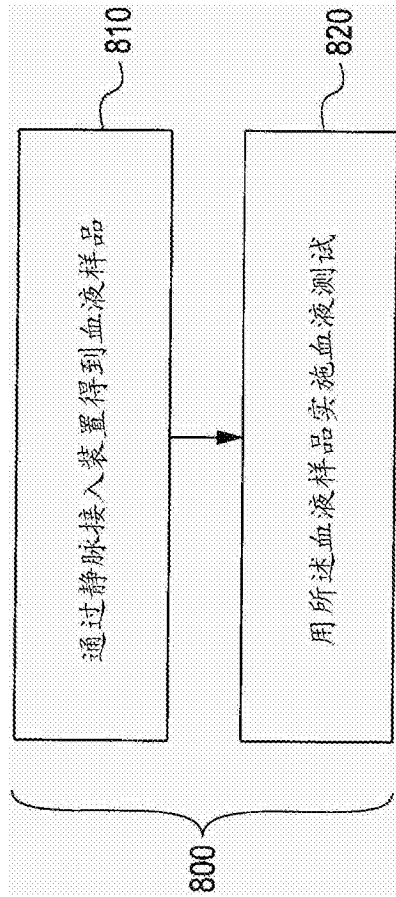 800
通过静脉接入装置得到血液样品
810
用所述血液样品实施血液测试
820